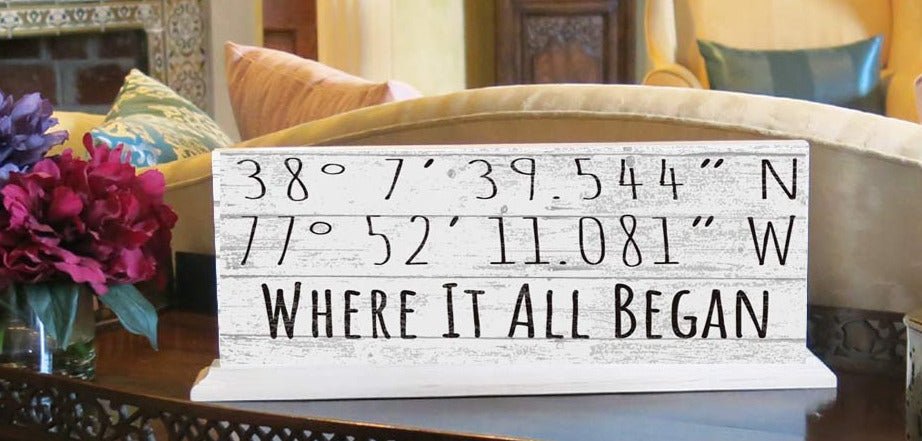 38° 7′ 39.544″ N
77° 52′ 11.081″ W
Where It All Began